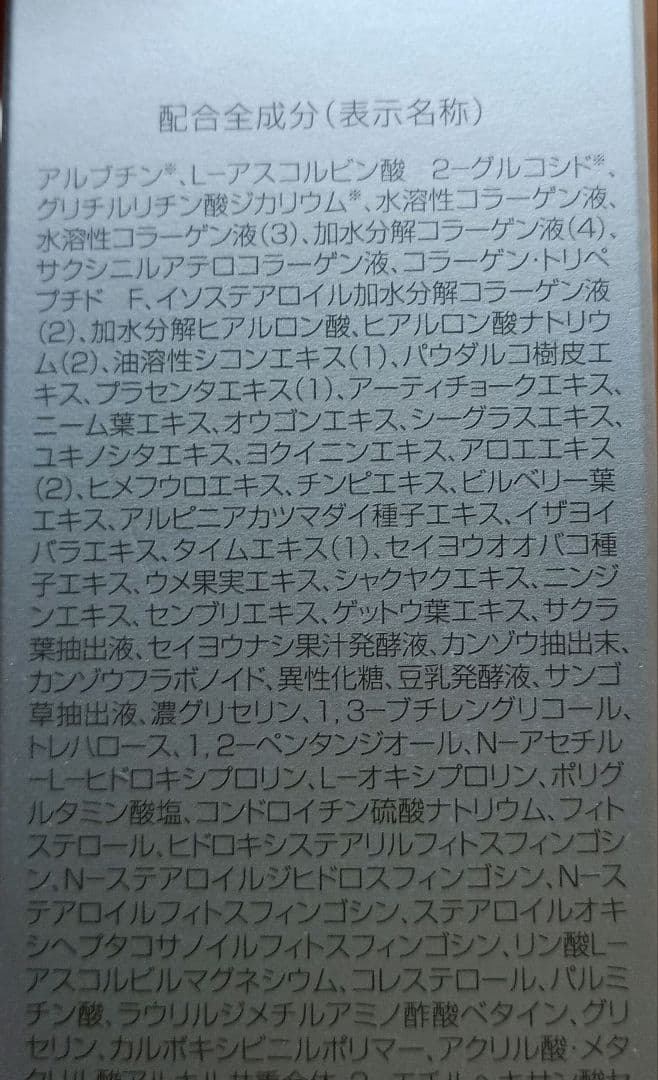 配合全成分(表示名称)
アルブチン※、L−アスコルビン酸　2−グルコシド※、
グリチルリチン酸ジカリウム※、水溶性コラーゲン液、
水溶性コラーゲン液(3)、加水分解コラーゲン液(4)、
サクシニルアテロコラーゲン液、コラーゲン・トリペ
プチド　F、イソステアロイル加水分解コラーゲン液
(2)、加水分解ヒアルロン酸、ヒアルロン酸ナトリウ
ム(2)、油溶性シコンエキス(1)、パウダルコ樹皮エ
キス、プラセンタエキス(1)、アーティチョークエキス、
ニーム葉エキス、オウゴンエキス、シーグラスエキス、
ユキノシタエキス、ヨクイニンエキス、アロエエキス
(2)、ヒメフウロエキス、チンピエキス、ビルベリー葉
エキス、アルピニアカツマダイ種子エキス、イザヨイ
バラエキス、タイムエキス(1)、セイヨウオオバコ種
子エキス、ウメ果実エキス、シャクヤクエキス、ニンジ
ンエキス、センブリエキス、ゲットウ葉エキス、サクラ
葉抽出液、セイヨウナシ果汁発酵液、カンゾウ抽出末、
カンゾウフラボノイド、異性化糖、豆乳発酵液、サンゴ
草抽出液、濃グリセリン、1,3−ブチレングリコール、
トレハロース、1,2−ペンタンジオール、N−アセチル
−L−ヒドロキシプロリン、L−オキシプロリン、ポリグ
ルタミン酸塩、コンドロイチン硫酸ナトリウム、フィト
ステロール、ヒドロキシステアリルフィトスフィンゴシ
ン、N−ステアロイルジヒドロスフィンゴシン、N−ス
テアロイルフィトスフィンゴシン、ステアロイルオキ
シヘプタコサノイルフィトスフィンゴシン、リン酸L−
アスコルビルマグネシウム、コレステロール、パルミ
チン酸、ラウリルジメチルアミノ酢酸ベタイン、グリ
セリン、カルボキシビニルポリマー、アクリル酸・メタ
クリル酸アルキル共重合体、2−エチルヘキサン酸セ